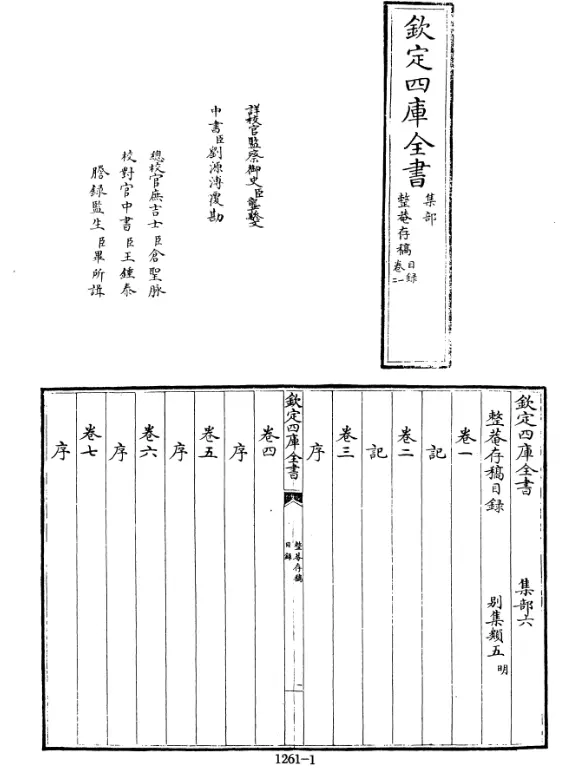 欽定四庫全書
集部
整菴存稿
目錄
卷一二
詳校官監察御史臣龔驂文
中書臣劉源溥覆勘
總校官庶吉士臣倉聖脉
校對官中書臣王鍾泰
謄錄監生臣畢所諿
欽定四庫全書 集部六
整菴存稿目錄 別集類五 明
卷一
記
卷二
記
卷三
序
欽定四庫全書
整菴存稿
目錄
一
卷四
序
卷五
序
卷六
序
卷七
序
1261-1